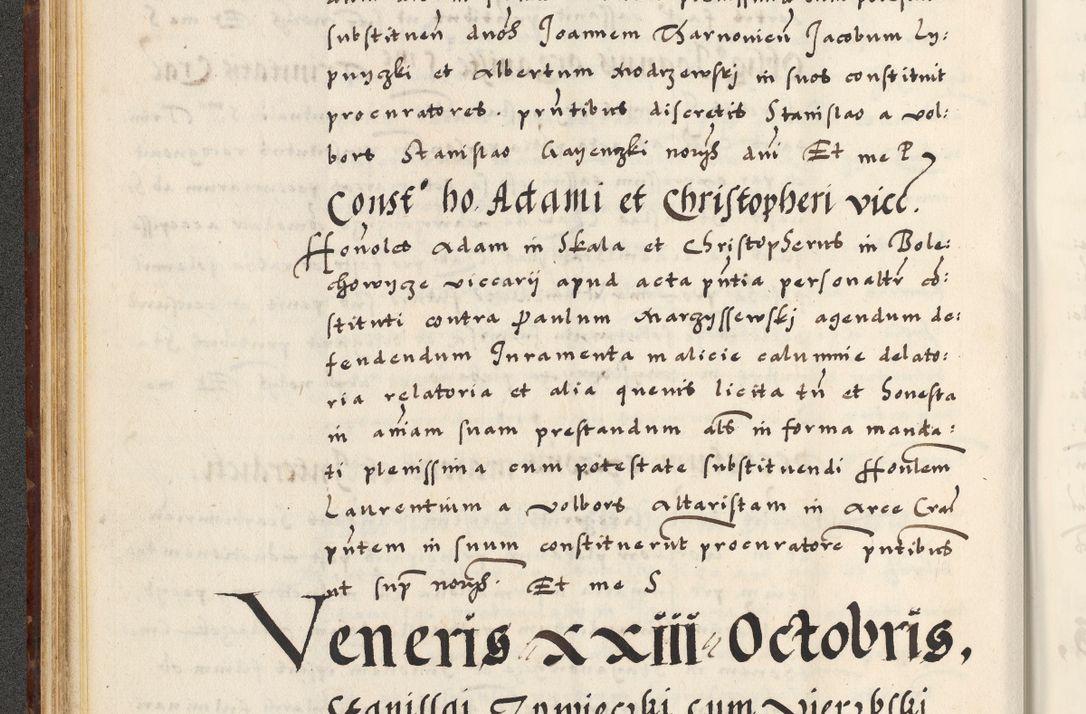 substituen̄ dnōs Joannem Tharnovien̄ Jacobum Ly:
pnyczki et Albertum Modrzewskj in suos constituit
procuratores. prn̄tibus discretis Stanislao a Vol:
bors Stanislao Gayenczki nor͂ys dn̄i Et me P
Const͂o ho. Adami et Christopheri vicc.
Honoles Adam in Skala et Christopherus in Bole:
chowycze viccarij apud acta pn̄tia personalr͂ cō:
stituti contra Paulum Marczyssewskj agendum de:
fendendum Juramenta malicie calumnie delato:
ria relatoria et alia quevis licita tn̄ et honesta
in an̄iam suam prestandum als̄ in forma manda:
ti plenissima cum potestate substituendi Honlem
Laurentium a Volbors Altaristam in Arce Cra͂
pn̄tem in suum constituerūt procuratorē pn̄tibus
ut sup͂ nor͂ys. Et me S
Veneris xxiii Octobris,
Stanislai cum